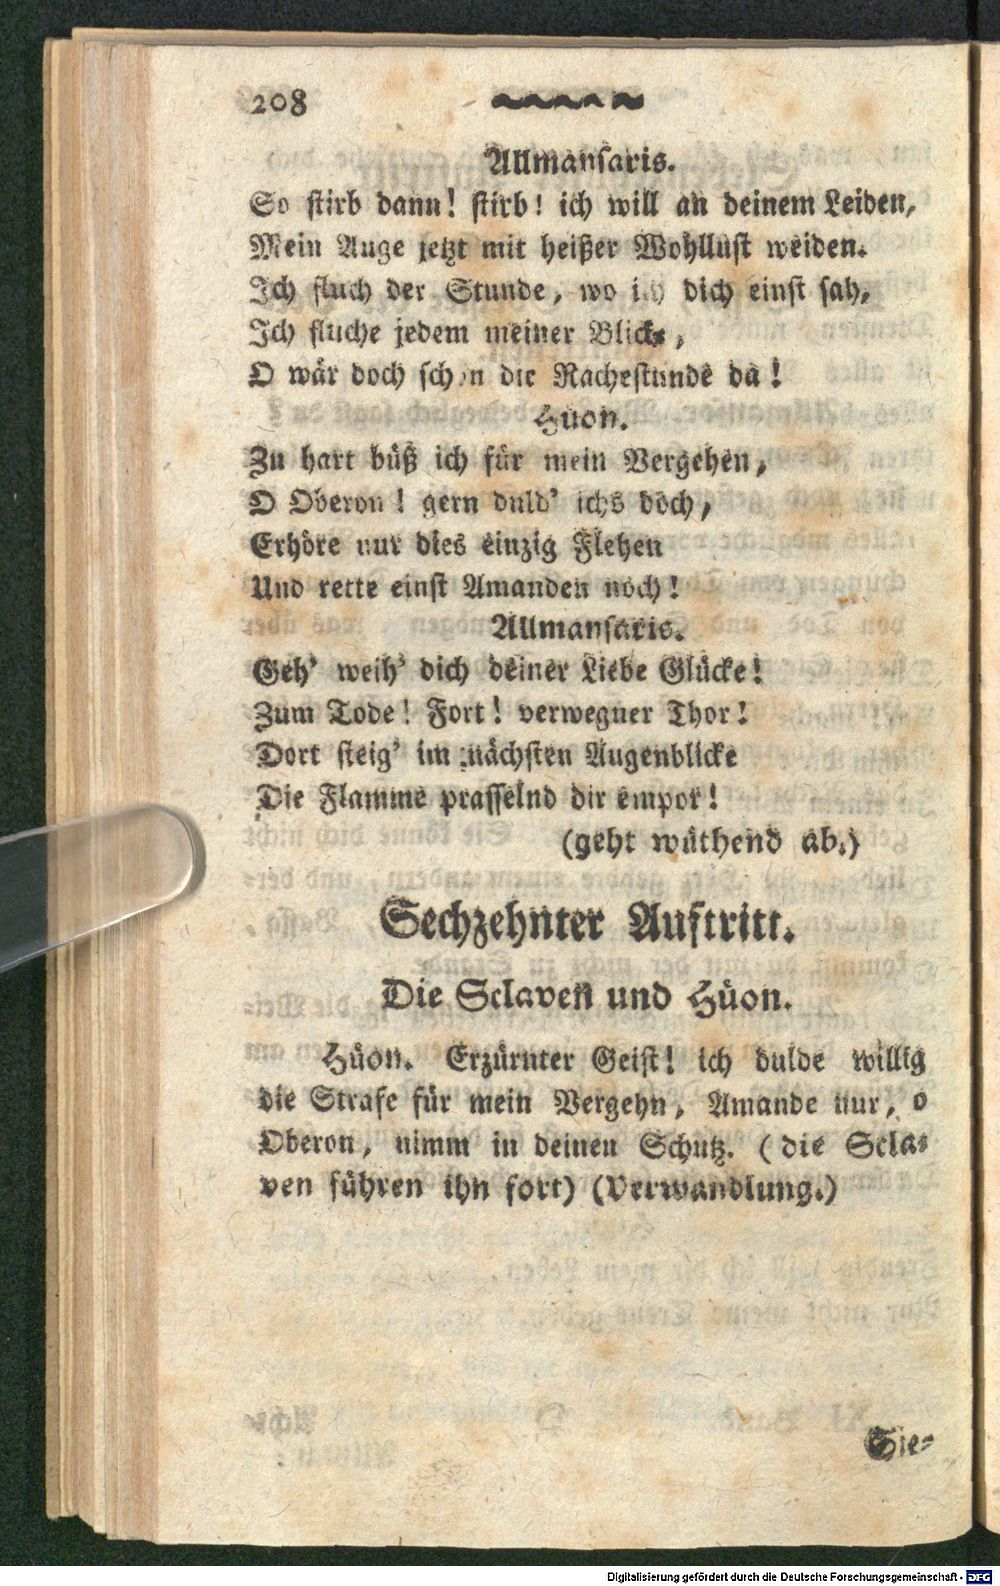 208
Allmansaris.
So stirb dann! stirb! ich will an deinem Leiden,
Mein Auge jetzt mit heißer Wohllust weiden.
Ich fluch der Stunde, wo ich dich einst sah,
Ich fluche jedem meiner Blicke,
O wär doch schon die Rachestunde da!
Hüon.
Zu hart büß ich für mein Vergehen,
O Oberon! gern duld' ichs doch,
Erhöre nur dies einzig Flehen
Und rette einst Amanden noch!
Allmansaris.
Geh' weih' dich deiner Liebe Glücke!
Zum Tode! Fort! verwegner Thor!
Dort steig' im nächsten Augenblicke
Die Flamme prasselnd dir empor!
(geht wüthend ab.)
Sechzehnter Auftritt.
Die Sclaven und Hüon.
Hüon. Erzürnter Geist! ich dulde willig
die Strafe für mein Vergehn, Amande nur, o
Oberon, nimm in deinen Schutz. (die Scla-
ven führen ihn fort) (Verwandlung.)
Sie-
Digitalisierung gefördert durch die Deutsche Forschungsgemeinschaft - DFG